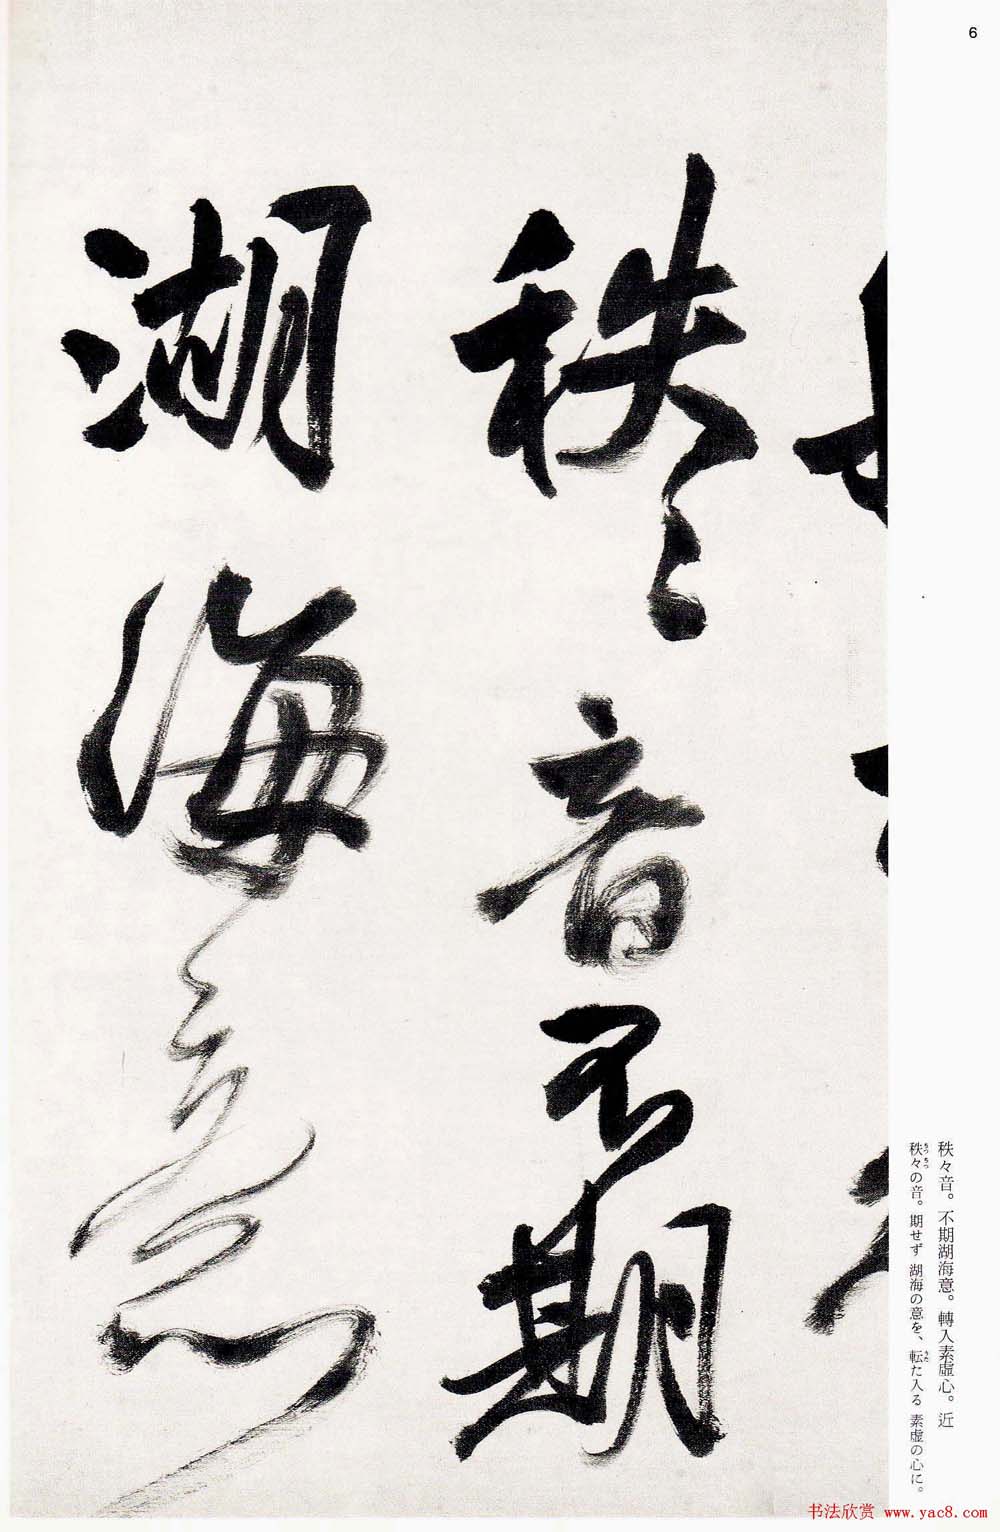 6
秩〻音不期
湖海意
秩々音。不期湖海意。轉入素虛心。近
秩々の音。期せず 湖海の意を、転た入る 素虚の心に。
ちつちつ
うた
书法欣赏 www.yac8.com